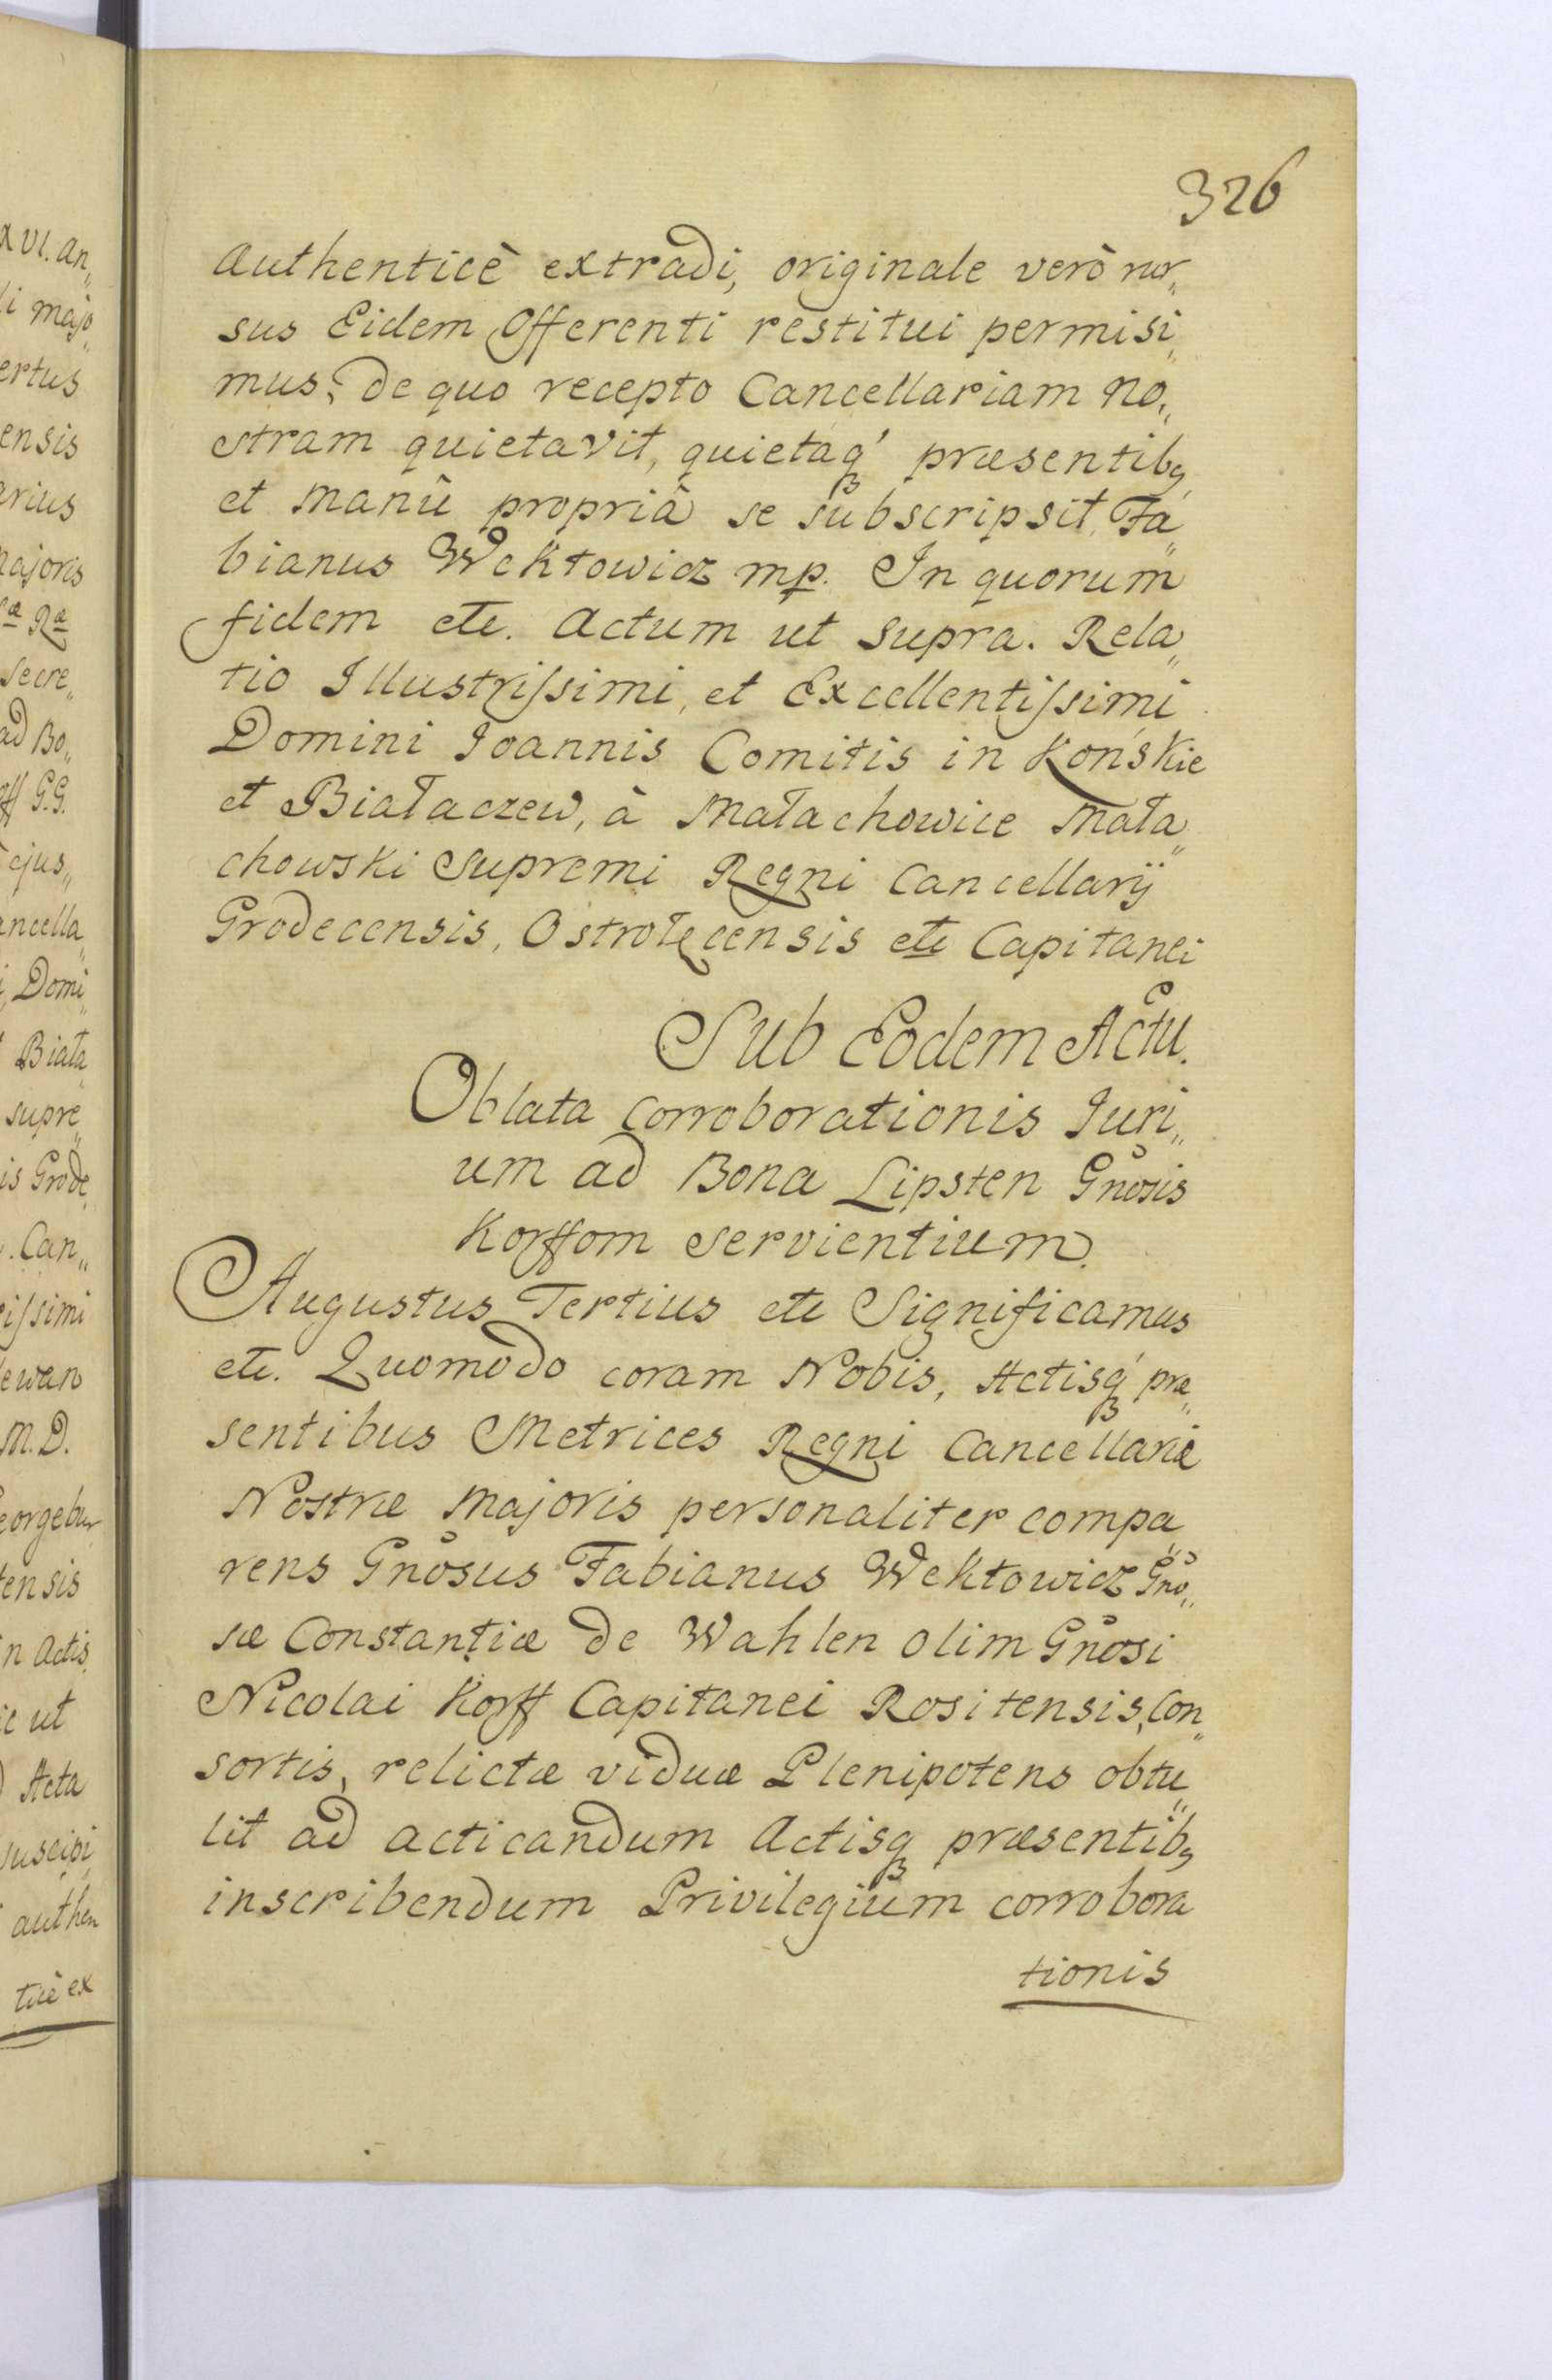 326
authenticè extradi, originale verò rur„
sus Eidem Offerenti restitui permisi„
mus, de quo recepto Cancellariam no„
stram quietavit, quietaq́ præsentibꝫ
et manû propriâ se subscripsit. Fa„
bianus Wektowicz mp. In quorum
fidem etc. Actum ut supra. Rela„
tio Illustrissimi, et Excellentissimi
Domini Ioannis Comitis in Końskie
et Białaczew, à Małachowice Mała„
chowski Supremi Regni Cancellarÿ
Grodecensis, Ostrołęcensis etc Capitanei
Sub Eodem Actu.
Oblata Corroborationis Juri„
um ad Bona Lipsten Gnosis
Korffom servientium.
Augustus Tertius etc Significamus
etc. Quomodo coram Nobis, Actisq́ præ„
sentibus Metrices Regni Cancellariæ
Nostræ Majoris personaliter compa„
rens Gnosus Fabianus Wektowicz Gno„
sæ Constantiæ de Wahlen olim Gnosi
Nicolai Korff Capitanei Rositensis, Con„
sortis, relictæ viduæ Plenipotens obtu„
lit ad acticandum Actisq præsentibꝫ
inscribendum Privilegium corrobora
tionis